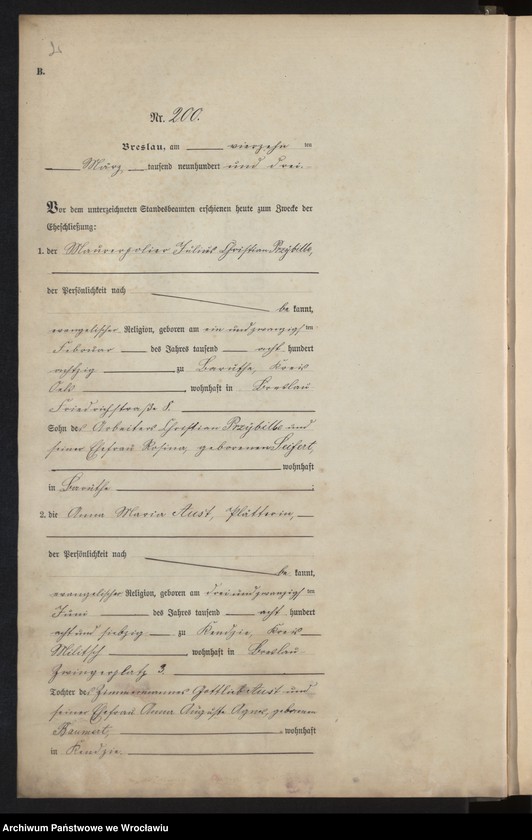 B.
Nr. 200.
Breslau, am vierzehn ten
März, tausend neunhundert und drei.
Vor dem unterzeichneten Standesbeamten erschienen heute zum Zwecke der
Eheschließung:
1. der Maurerpolier Julius Christian Przybille,
der Persönlichkeit nach
be kannt,
evangelischer Religion, geboren am ein und zwanzigsten
Februar des Jahres tausend acht hundert
achtzig zu Baruthe, Kreis
Oels, wohnhaft in Breslau
Friedrichstraße 8.
Sohn des Arbeiters Christian Przybille und
seiner Ehefrau Rosina, geborenen Seifert,
wohnhaft
in Baruthe ;
2. die Anna Maria Aust, Plätterin,
der Persönlichkeit nach
be kannt,
evangelischer Religion, geboren am drei und zwanzigsten
Juni des Jahres tausend acht hundert
acht und siebzig zu Kendzie, Kreis
Militsch, wohnhaft in Breslau
Zwingerplatz 3.
Tochter des Zimmermannes Gottlieb Aust und
seiner Ehefrau Anna Auguste Agnes, geborenen
Baumert, wohnhaft
in Kendzie.
Archiwum Państwowe we Wrocławiu